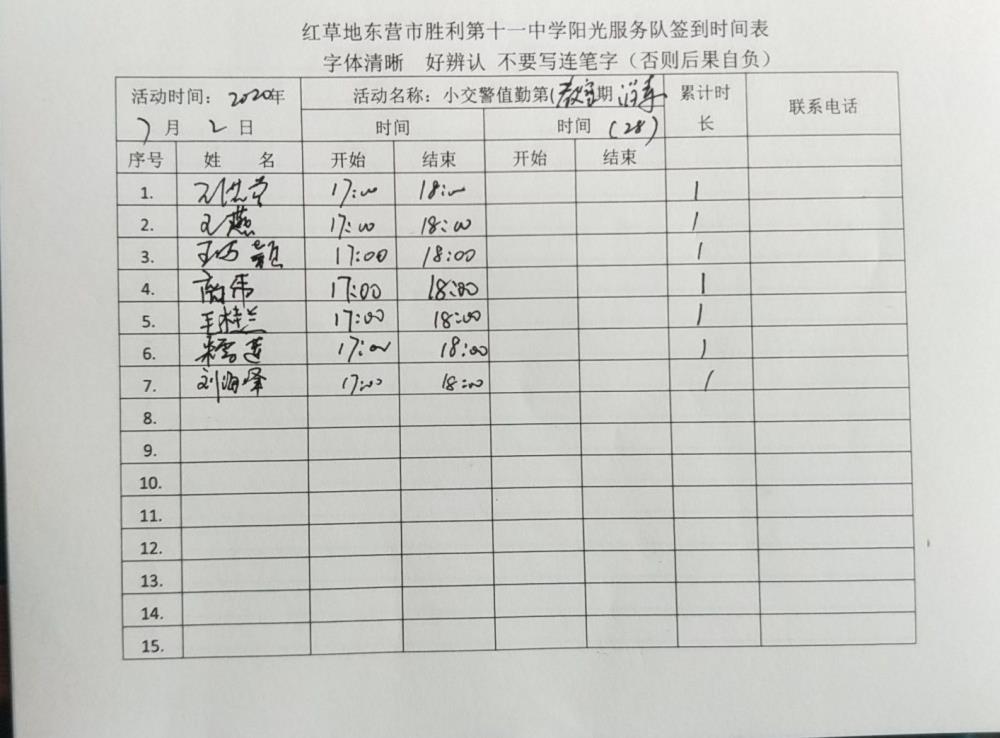 红草地东营市胜利第十一中学阳光服务队签到时间表
字体清晰 好辨认 不要写连笔字（否则后果自负）
活动时间： 2020年 活动名称：小交警值勤第(教室期 消毒 累计时 联系电话
7月 2日 时间 时间 (28) 长
序号 姓 名 开始 结束 开始 结束
1. 17:00 18:00 1
2. 王燕 17:00 18:00 1
3. 17:00 18:00 1
4. 高伟 17:00 18:00 1
5. 王桂兰 17:00 18:00 1
6. 17:00 18:00 1
7. 刘海峰 17:00 18:00 1
8.
9.
10.
11.
12.
13.
14.
15.